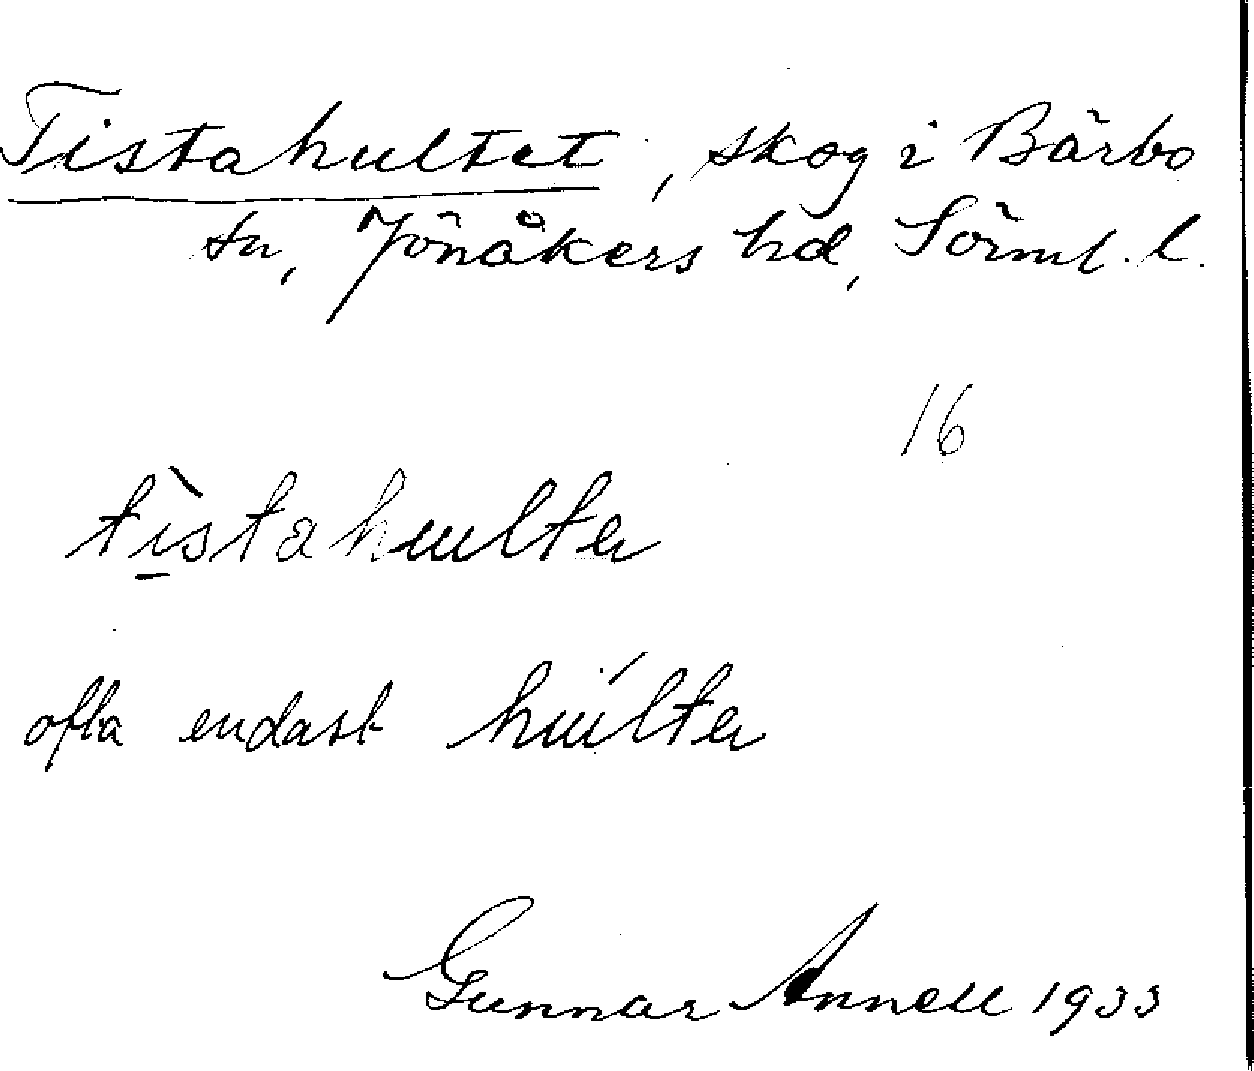 Tistahultet, skog i Bärbo
sn, Jönåkers hd, Sörml. l.
16
tìstahulta
ofta endast húlta
Gunnar Annell 1933